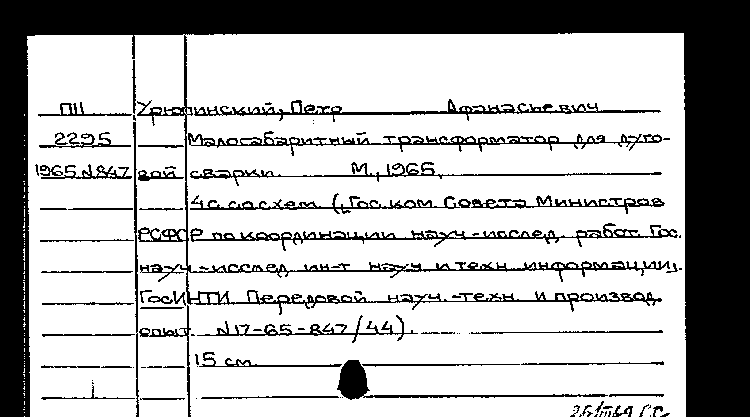 П11 Урюпинский, Петр Афанасьевич
2295 Малогабаритный трансформатор для дуго-
1965 N847 вой сварки. М., 1965.
4 с. со схем. (Гос. ком. Совета Министров
РСФСР по координации науч.-исслед. работ. Гос.
науч.-исслед. ин-т науч. и техн. информации.
ГосИНТИ. Передовой науч.-техн. и производ.
опыт. N17-65-847/44).
15 см.